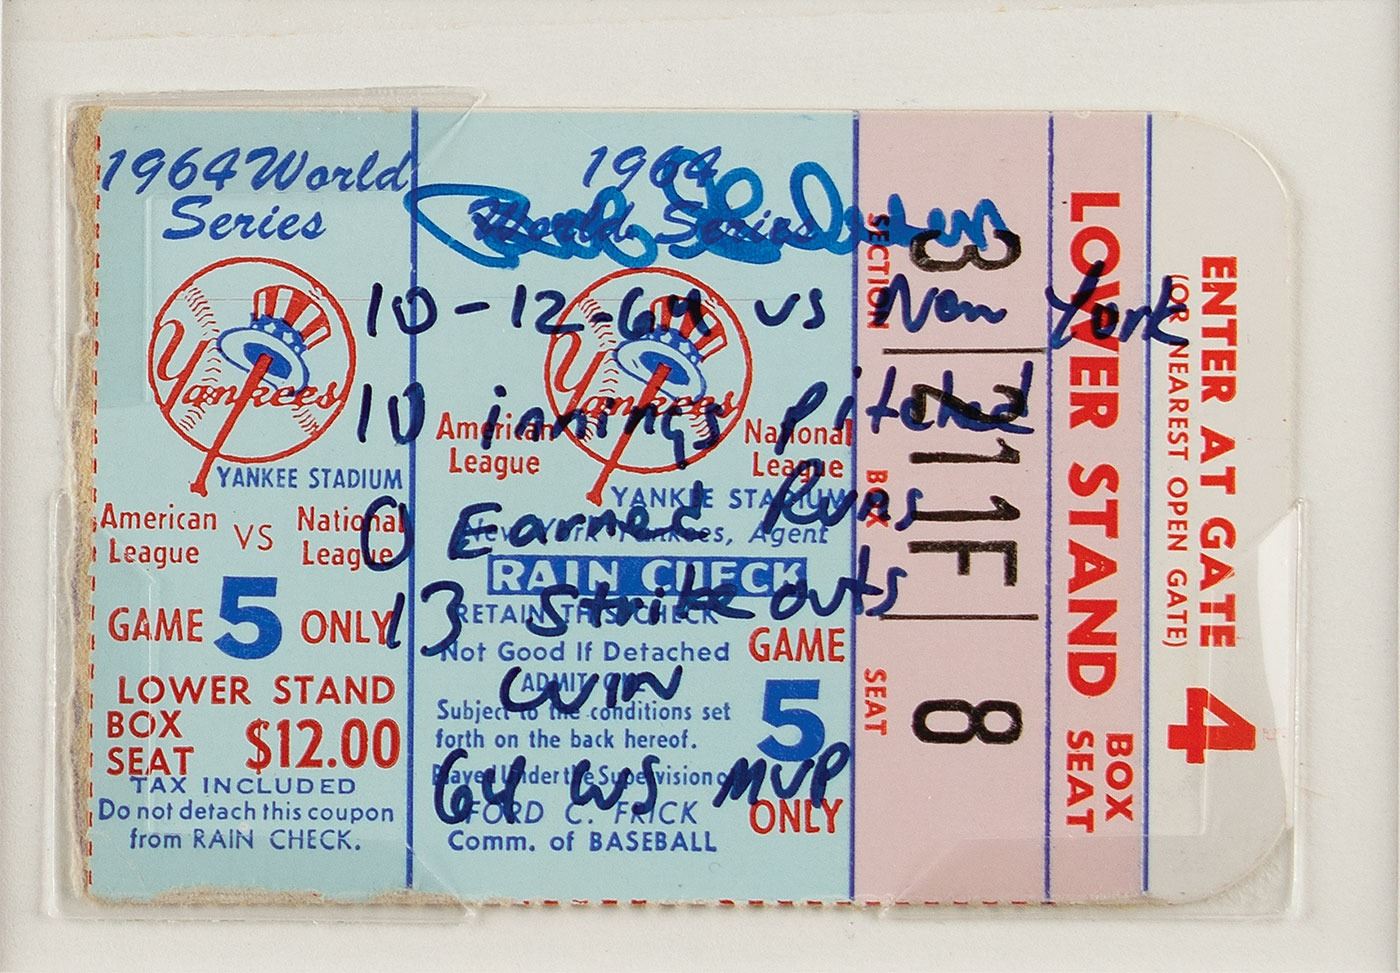 1964 World
Series
Yankees
YANKEE STADIUM
American
League
VS
National
League
GAME 5 ONLY
LOWER STAND
BOX
SEAT
$12.00
TAX INCLUDED
Do not detach this coupon
from RAIN CHECK.
1964
World Series
Yankees
American
League
National
League
YANKEE STADIUM
New York Yankees, Agent
RAIN CHECK
RETAIN THIS CHECK
Not Good If Detached
ADMIT ONE
Subject to the conditions set
forth on the back hereof.
Played Under the Supervision of
FORD C. FRICK
Comm. of BASEBALL
GAME
5
ONLY
10-12-64 vs New York
10 innings pitched
0 Earned Runs
13 Strikeouts
WIN
64 WS MVP
SECTION
3
BOX
211F
SEAT
8
LOWER STAND
BOX
SEAT
ENTER AT GATE 4
(OR NEAREST OPEN GATE)